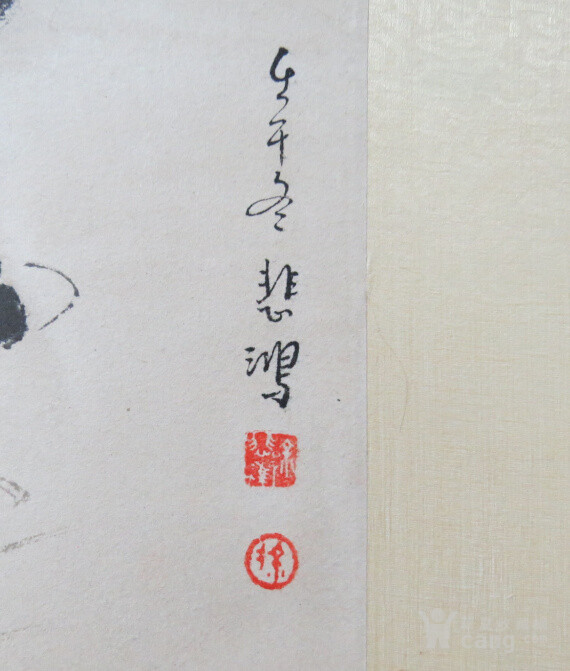 壬午冬 悲鴻
徐